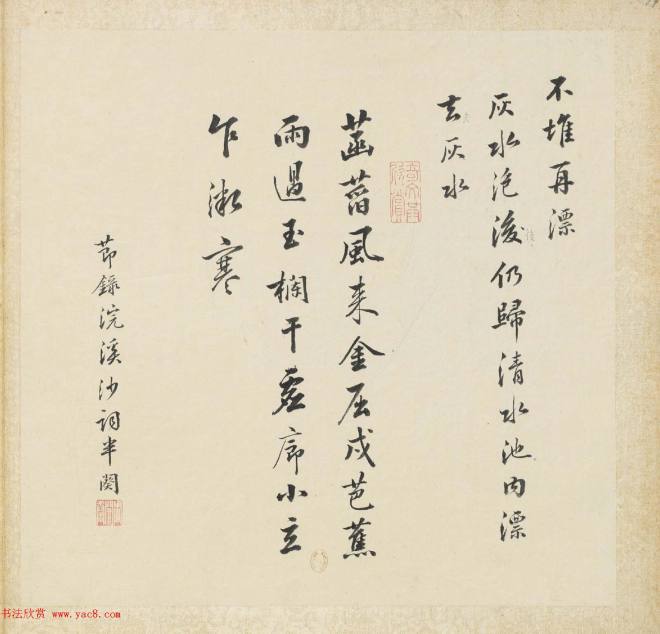 不堆再漂
灰水泡浚仍歸清水池内漂
去灰水
菡萏風来金屈戍芭蕉
雨過玉欄干虚廊小立
乍微寒
節錄浣溪沙詞半闋
书法欣赏 www.yac8.com